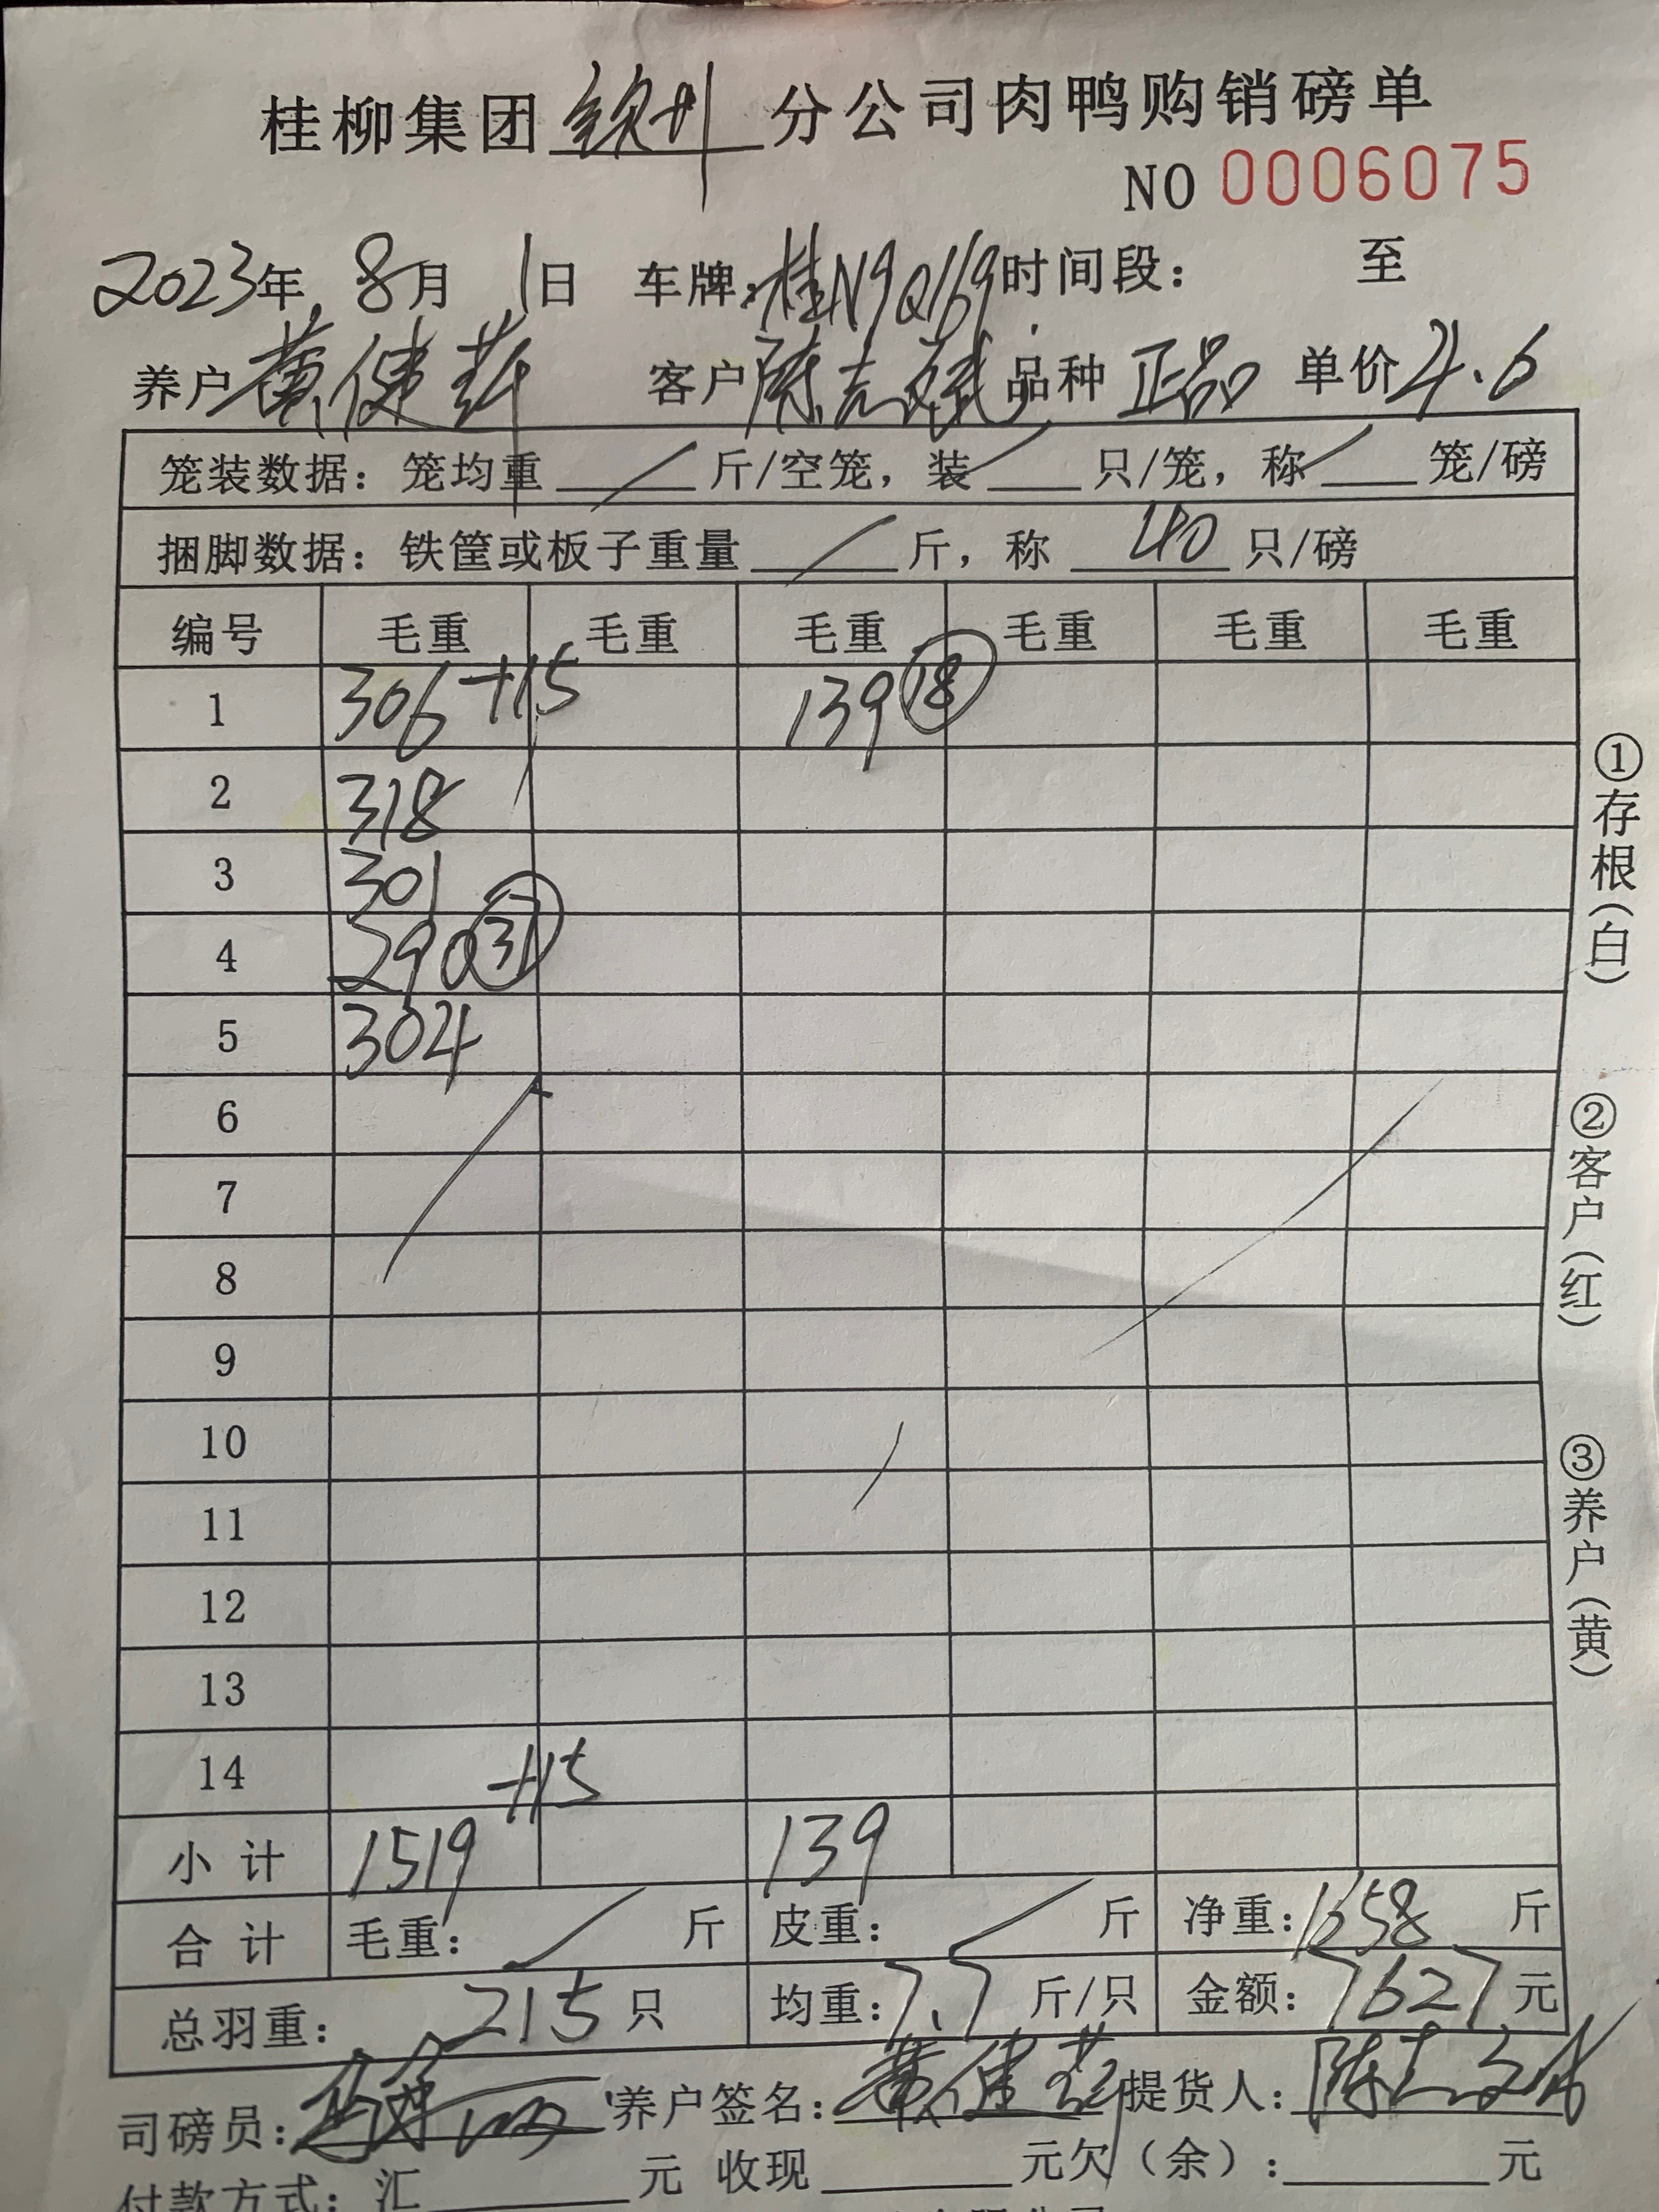 桂柳集团 钦州 分公司肉鸭购销磅单
NO 0006075
2023年 8月 1日 车牌:桂N9Q169 时间段: 至
养户 黄健 客户 陈志斌 品种 正品 单价 4.6
笼装数据: 笼均重 斤/空笼, 装 只/笼, 称 笼/磅
捆脚数据: 铁筐或板子重量 斤, 称 40 只/磅
编号 毛重 毛重 毛重 毛重 毛重 毛重
1 306 +15 139 ⑱
2 318
3 301
4 290 ㉛
5 304
6
7
8
9
10
11
12
13
14 +15
小 计 1519 139
合 计 毛重: 斤 皮重: 斤 净重: 1658 斤
总羽重: 215 只 均重: 7.7 斤/只 金额: 7627 元
司磅员: 养户签名: 黄健 提货人: 陈志斌
付款方式: 汇 元 收现 元欠(余): 元
①存根(白)
②客户(红)
③养户(黄)